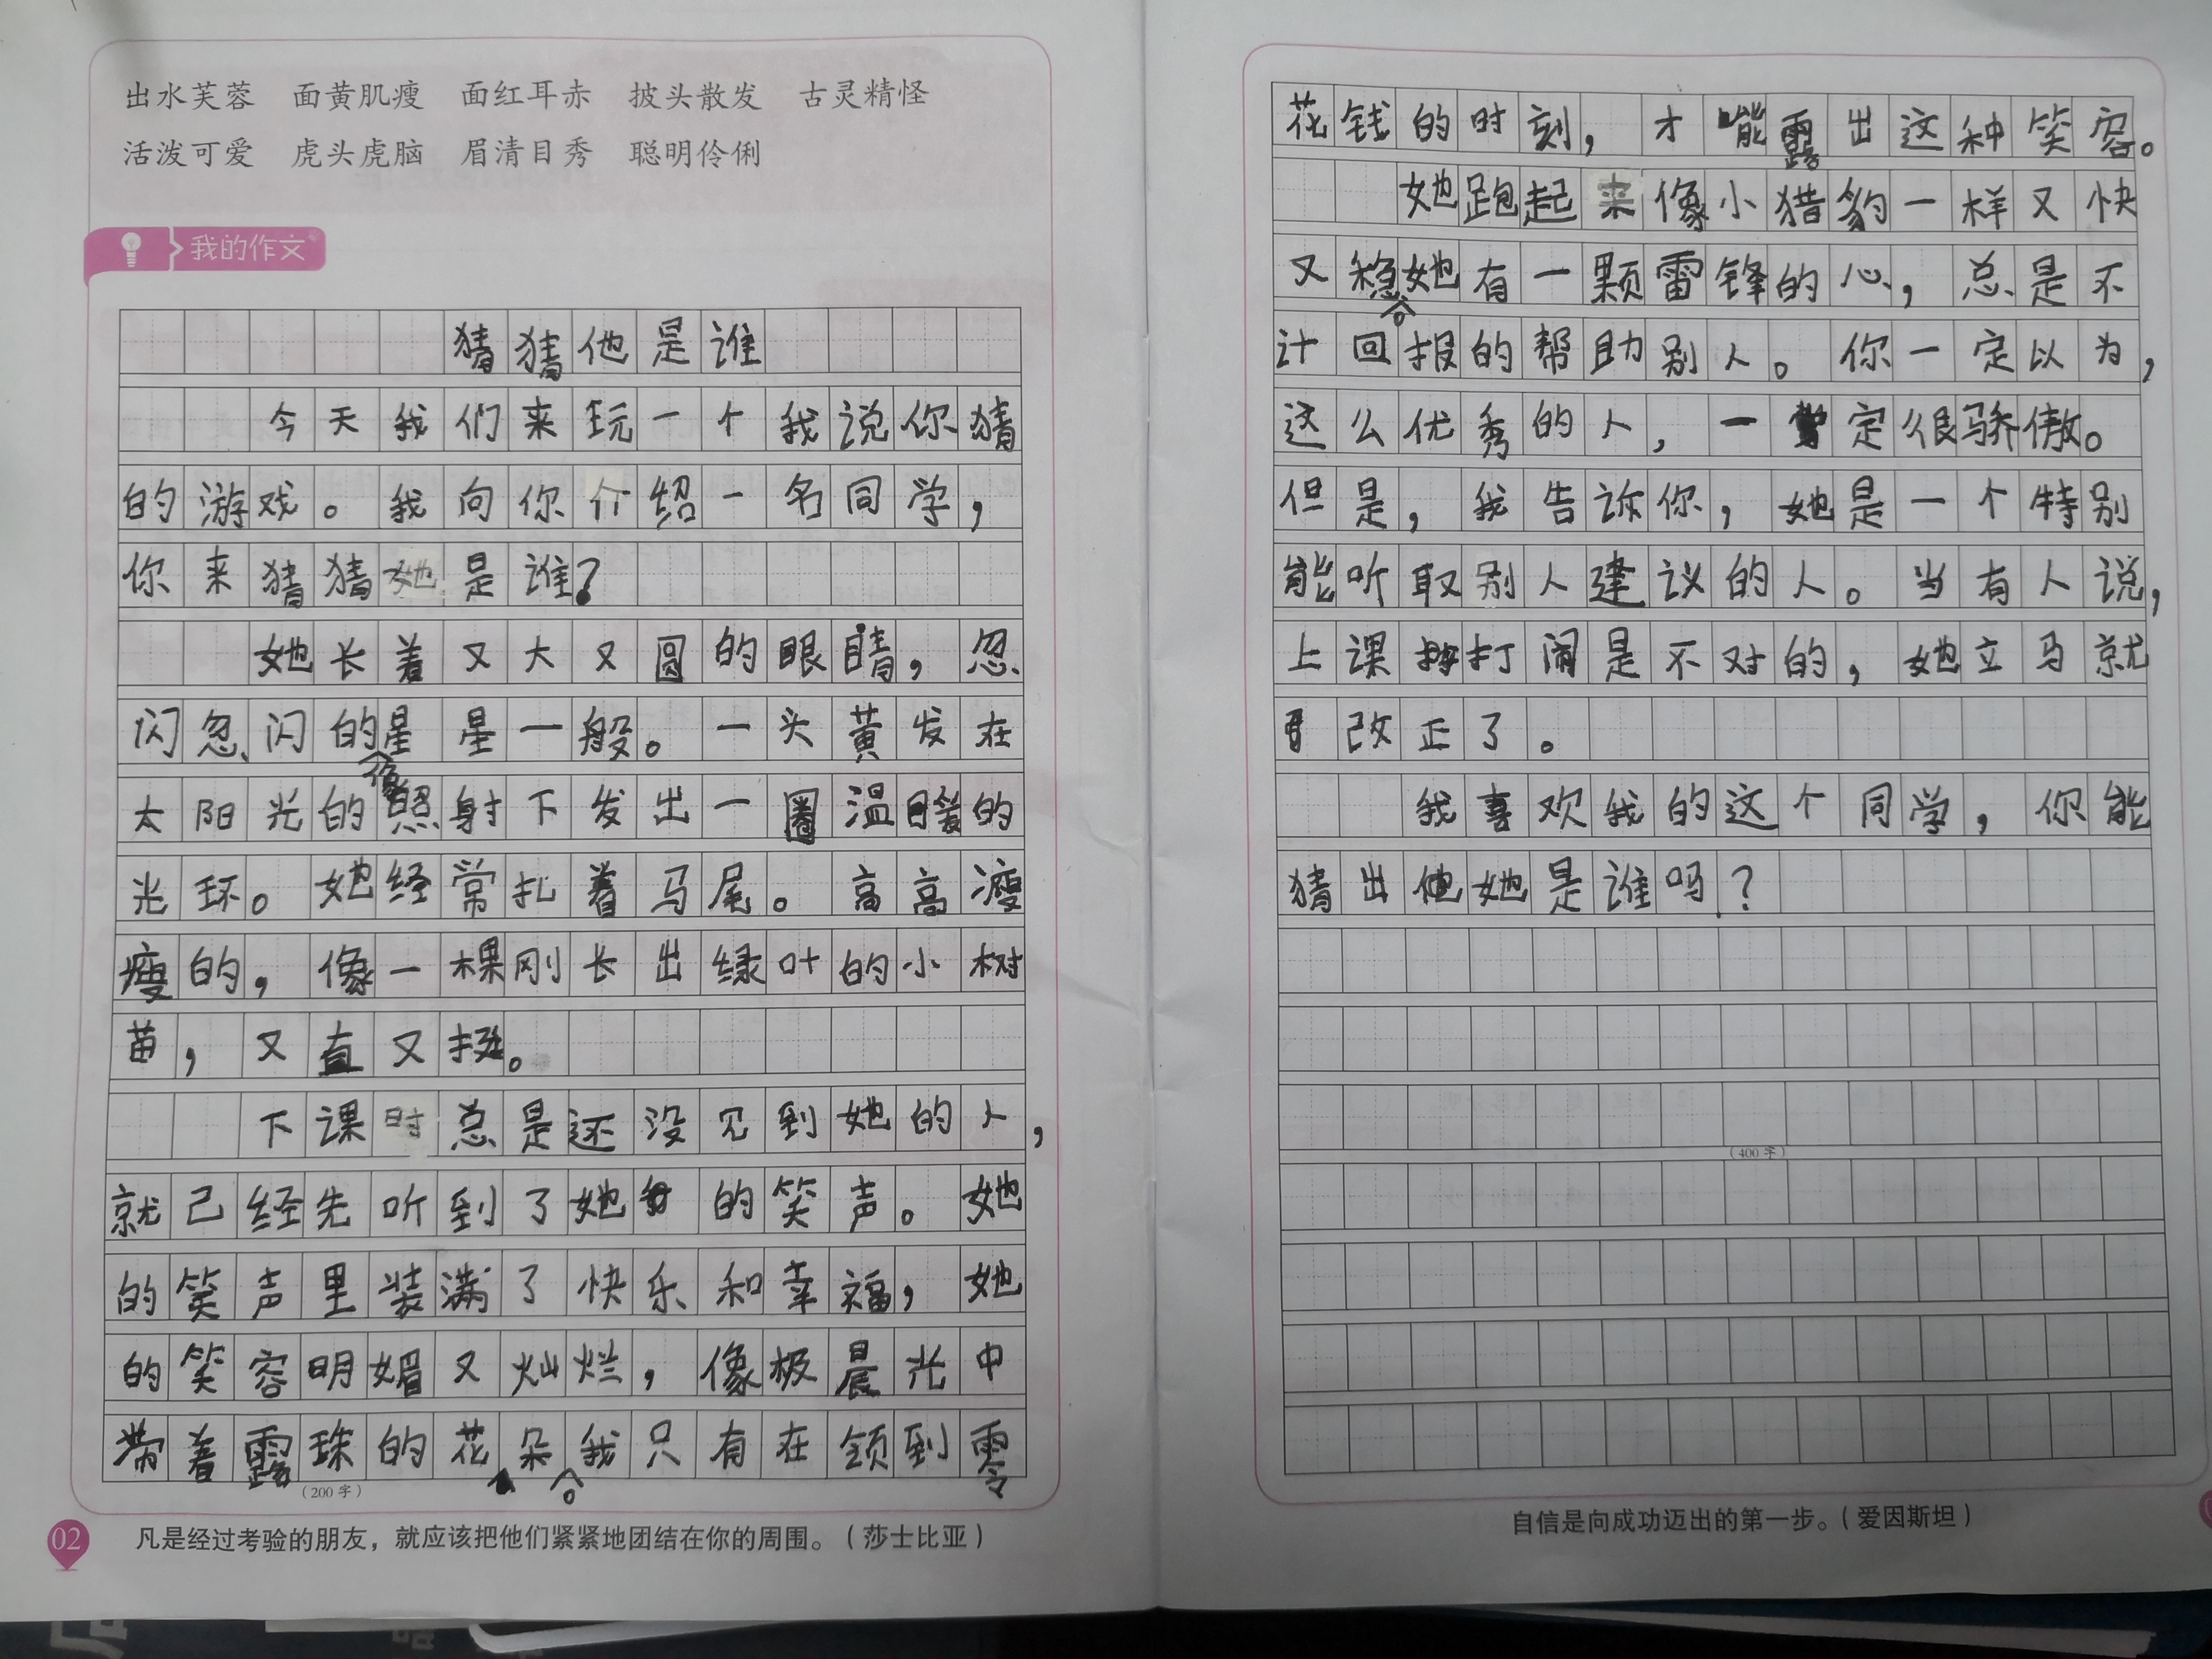 出水芙蓉 面黄肌瘦 面红耳赤 披头散发 古灵精怪
活泼可爱 虎头虎脑 眉清目秀 聪明伶俐
我的作文
猜猜他是谁
今天我们来玩一个我说你猜
的游戏。我向你介绍一名同学，
你来猜猜她是谁？
她长着又大又圆的眼睛，忽
闪忽闪的像星星一般。一头黄发在
太阳光的照射下发出一圈温暖的
光环。她经常扎着马尾。高高瘦
瘦的，像一棵刚长出绿叶的小树
苗，又直又挺。
下课时总是还没见到她的人，
就已经先听到了她的笑声。她
的笑声里装满了快乐和幸福，她
的笑容明媚又灿烂，像极晨光中
带着露珠的花朵。我只有在领到零
（200字）
02
凡是经过考验的朋友，就应该把他们紧紧地团结在你的周围。（莎士比亚）
花钱的时刻，才能露出这种笑容。
她跑起来像小猎豹一样又快
又稳。她有一颗雷锋的心，总是不
计回报的帮助别人。你一定以为，
这么优秀的人，一定很骄傲。
但是，我告诉你，她是一个特别
能听取别人建议的人。当有人说，
上课打闹是不对的，她立马就
改正了。
我喜欢我的这个同学，你能
猜出她是谁吗？
（400字）
自信是向成功迈出的第一步。（爱因斯坦）